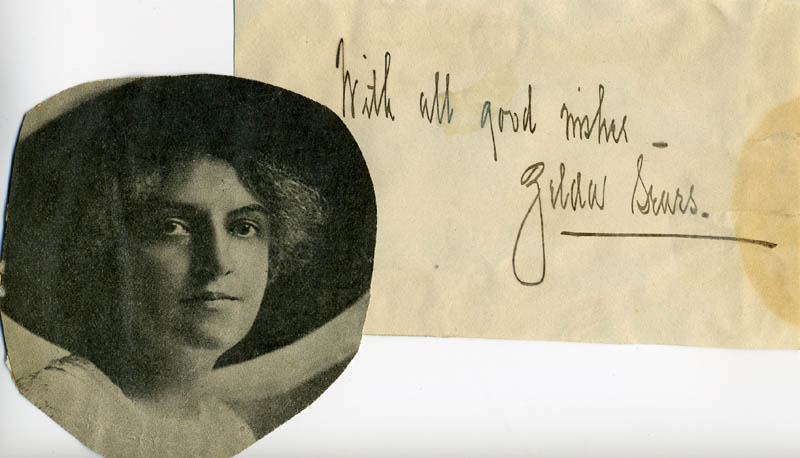 With all good wishes -
Zelda Sears.